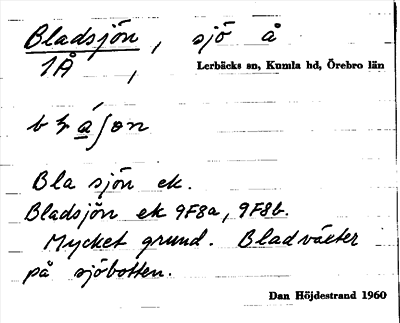 Bladsjön, sjö å
1Å ,
Lerbäcks sn, Kumla hd, Örebro län
Bla sjön ek.
Bladsjön ek 9F8a, 9F8b.
Mycket grund. Bladväxter
på sjöbotten.
Dan Höjdestrand 1960